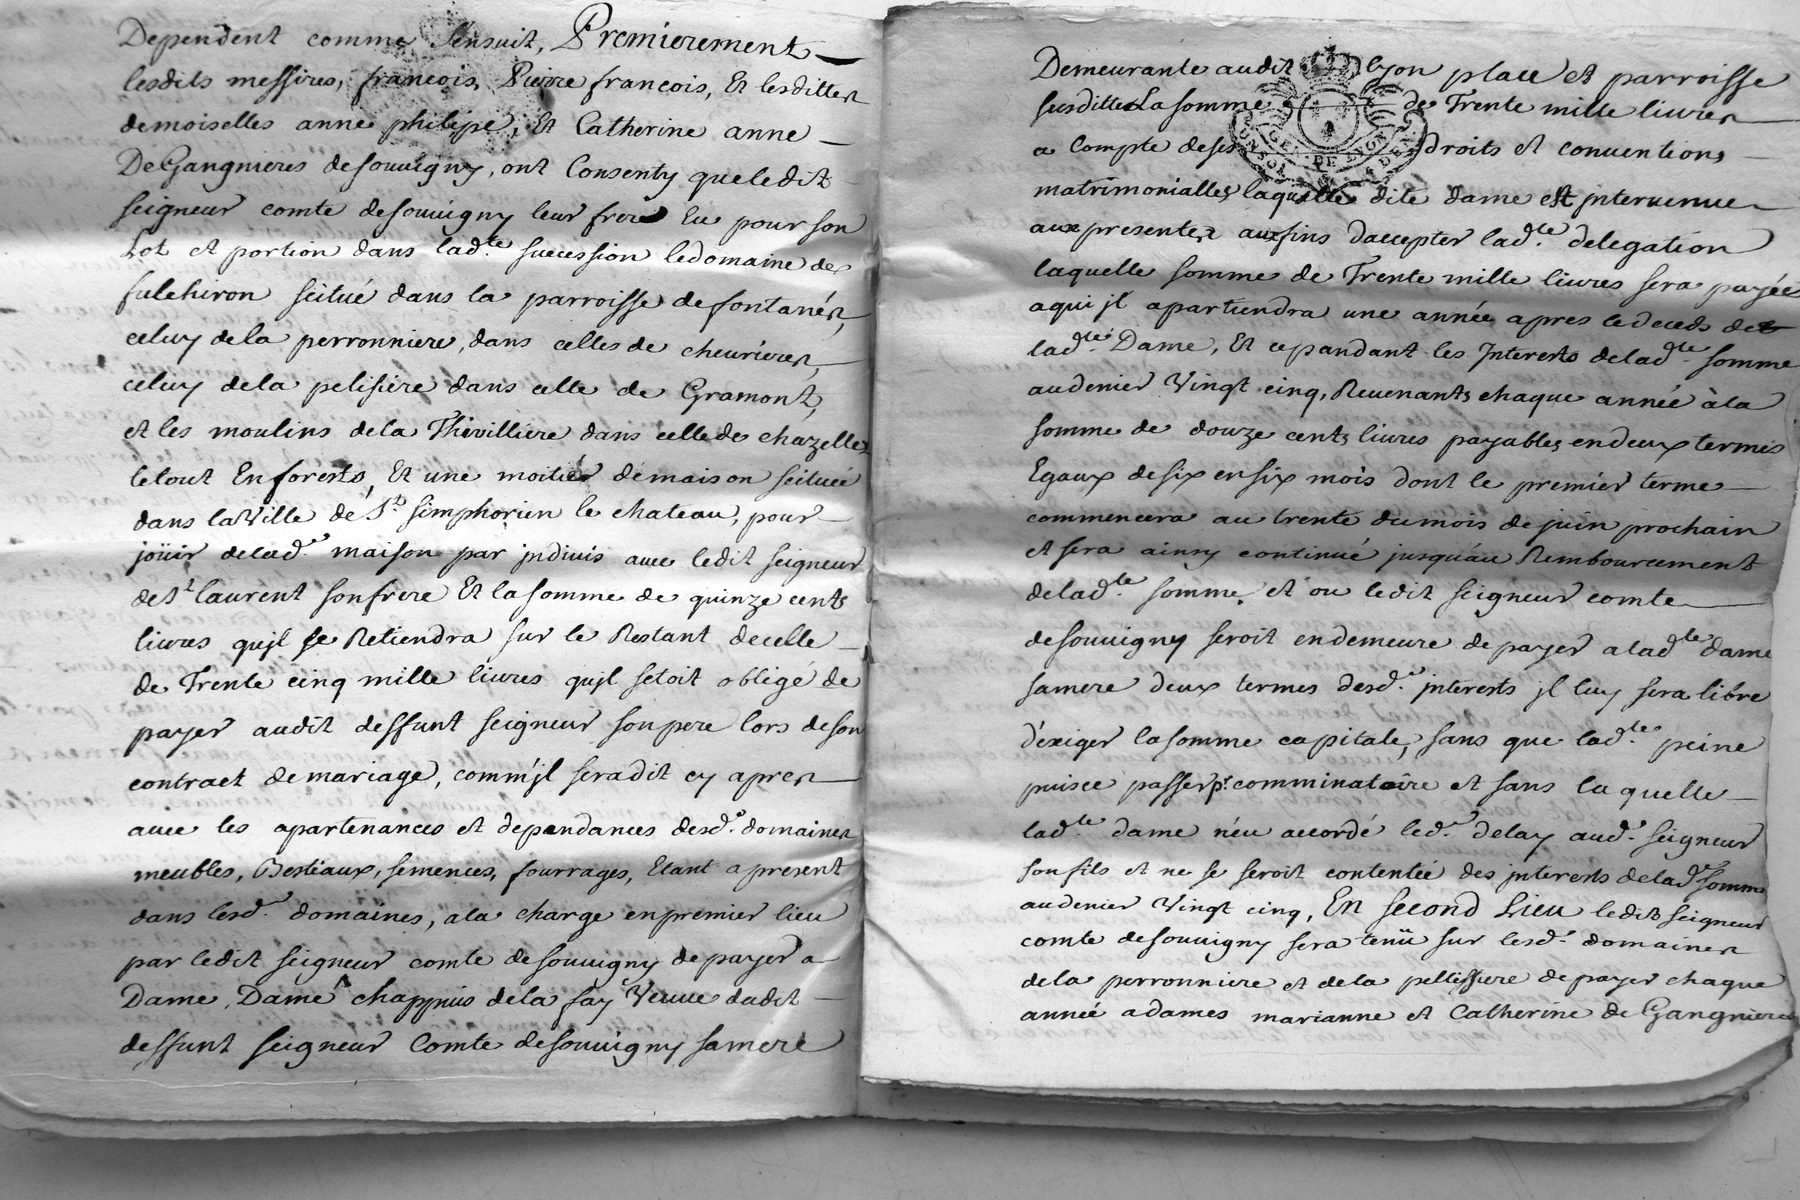 Dependent comme sensuit, Premierement
lesdits messires, francois, Pierre francois, Et lesdittes
demoiselles anne philipe, Et Catherine anne
De Gangnieres desouvigny, ont Consenty queledit
seigneur comte desouvigny leur frere Eu pour son
Lot et portion dans lad.te succession ledomaine de
fulchiron scitué dans la parroisse defontanés,
celuy dela perronniere, dans celles de cheurieres,
celuy dela pelisiere dans celle de Gramont,
et les moulins dela Thivilliere dans celle de chazelles
letout En forests, Et une moitié demaison scituée
dans la Ville de St. simphorien le chateau, pour
joüir delad.e maison par jndivis avec ledit seigneur
de St laurent sonfrere Et lasomme de quinze cents
livres qujl se Retiendra sur le Restant decelle
de Trente cinq mille livres qujl setoit obligé de
payer audit deffunt seigneur sonpere lors deson
contract demariage, comm'jl seradit cy apres
avec les apartenances et dependances desd.s domaines
meubles, Bestiaux, semences, fourrages, Etant apresent
dans lesd.s domaines, ala charge enpremier lieu
par ledit seigneur comte desouvigny depayer a
Dame, Dame chappuis dela fay Veuve dudit
deffunt seigneur Comte desouvigny samere
Demeurante audit lyon place et parroisse
susdittes La somme de Trente mille livres
a Compte de ses droits et conventions
GEN DE LYON
matrimonialles laquelle dite dame est jntervenue
aux presentes aux fins daccepter lad.te delegation
laquelle somme de Trente mille livres sera payée
aqui jl apartiendra une année apres ledeceds de
lad.te Dame, Et cependant les Jnterests delad.te somme
audenier Vingt cinq, Revenants chaque année àla
somme de douze cents livres payables endeux termes
Egaux desix ensix mois dont le premier terme
commencera au trente dumois de juin prochain
et sera ainsy continué jusquau Rembourcement
delad.te somme, et ou ledit seigneur comte
desouvigny seroit endemeure depayer alad.te dame
samere deux termes desd.s jnterests jl luy sera libre
d'exiger lasomme capitale, sans que lad.te peine
puisse passer pr. comminatoire et sans laquelle
lad.te dame n'eu accordé led.t delay aud.t seigneur
sonfils et ne se seroit contentée des jnterests delad.e somme
audenier Vingt cinq, En second Lieu ledit seigneur
comte desouvigny sera tenü sur lesd.s domaines
dela perronniere et dela pellissiere depayer chaque
année adames marianne et Catherine de Gangnieres